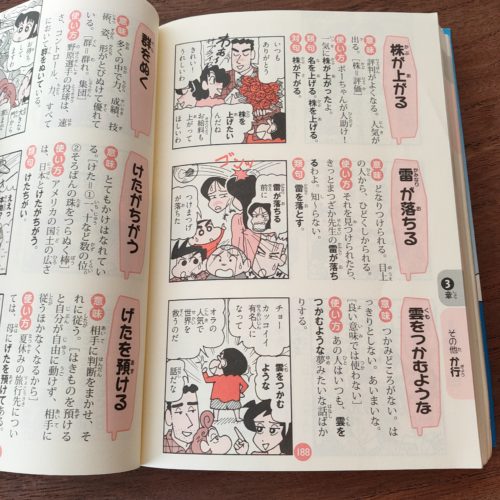 3章
その他 か行
株が上がる
意味 評判がよくなる。人気が
出る。「株=評価」
使い方
一気に株が上がったよ。
類句 名を上げる。株を上げる。
対句 株が下がる。
いつも
ありがとう
きれい〜!
株を
上げたい
んだね
お給料も
上がって
ほしいわ
雷が落ちる
意味 どなりつけられる。目上
の人から、ひどくしかられる。
使い方 それを見つけられたら、
きっとまつざか先生の雷が落ち
るわよ。知〜らない。
類句 雷を落とす。
雷が落ちる
前に
つけまつげ
が落ちた
雲をつかむような
意味 つかみどころがない。は
っきりとしない。あいまいな。
[良い意味では使わない]
使い方 あの人はいつも、雲を
つかむような夢みたいな話ばか
りする。
チョー
カッコイイ
有名人に
なって
オラの
人気で
世界を
救うのだ
雲をつかむ
ような
話だな
188
群をぬく
意味 多くの中で力、成績、技
術、姿、形がとびぬけて優れて
いる。「群=群れ。集団」
使い方 野原選手の投球は、速
さ、コントロール、力、すべて
において群をぬいている。
けたがちがう
意味 とてもかけはなれてい
る。「けた=①一、十など数の位
②そろばんの珠をつらぬく棒」
使い方 アメリカの国土の広さ
は、日本とけたがちがう。
類句 けたちがい。
げたを預ける
意味 相手に判断をまかせ、そ
れに従う。「はきものを預ける
と自分が自由に動けず、相手に
従うほかなくなるから」
使い方 夏休みの旅行先につい
ては、母にげたを預けてある。